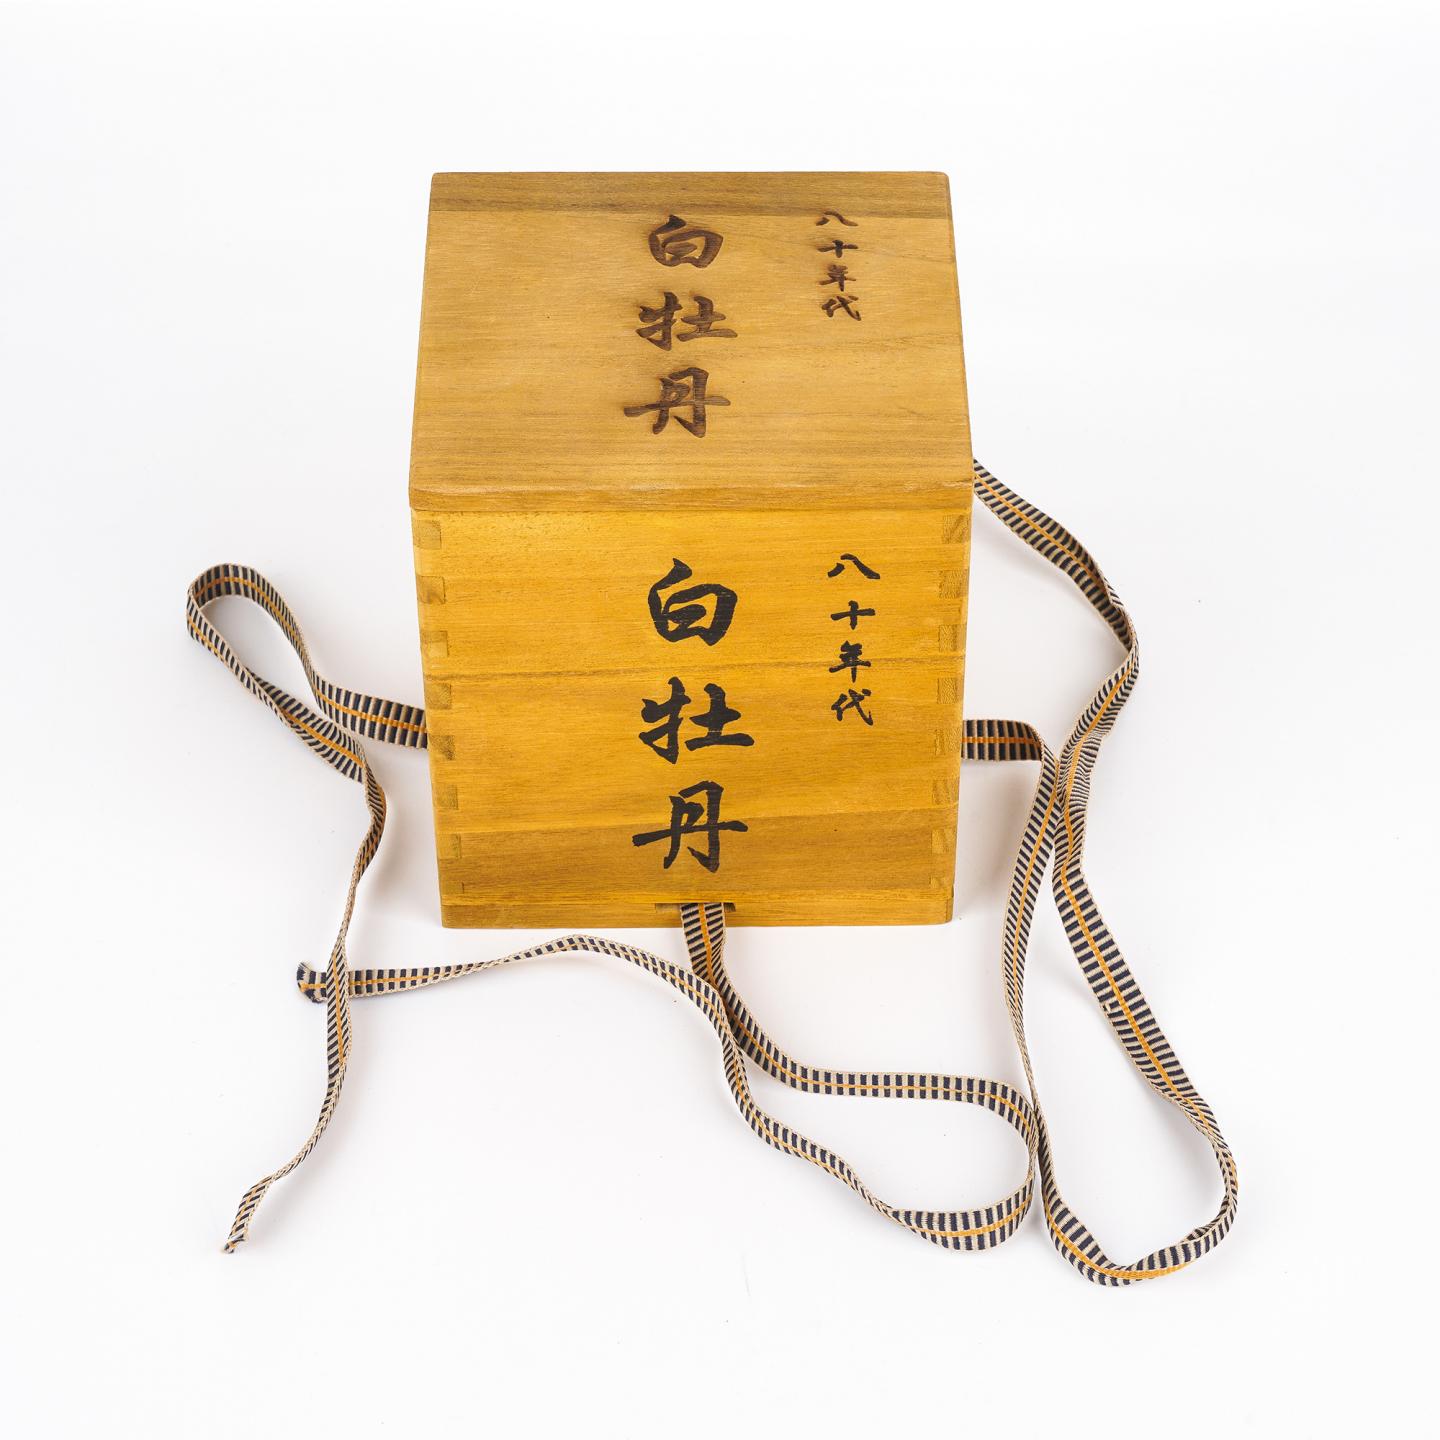 八十年代
白牡丹
八十年代
白牡丹